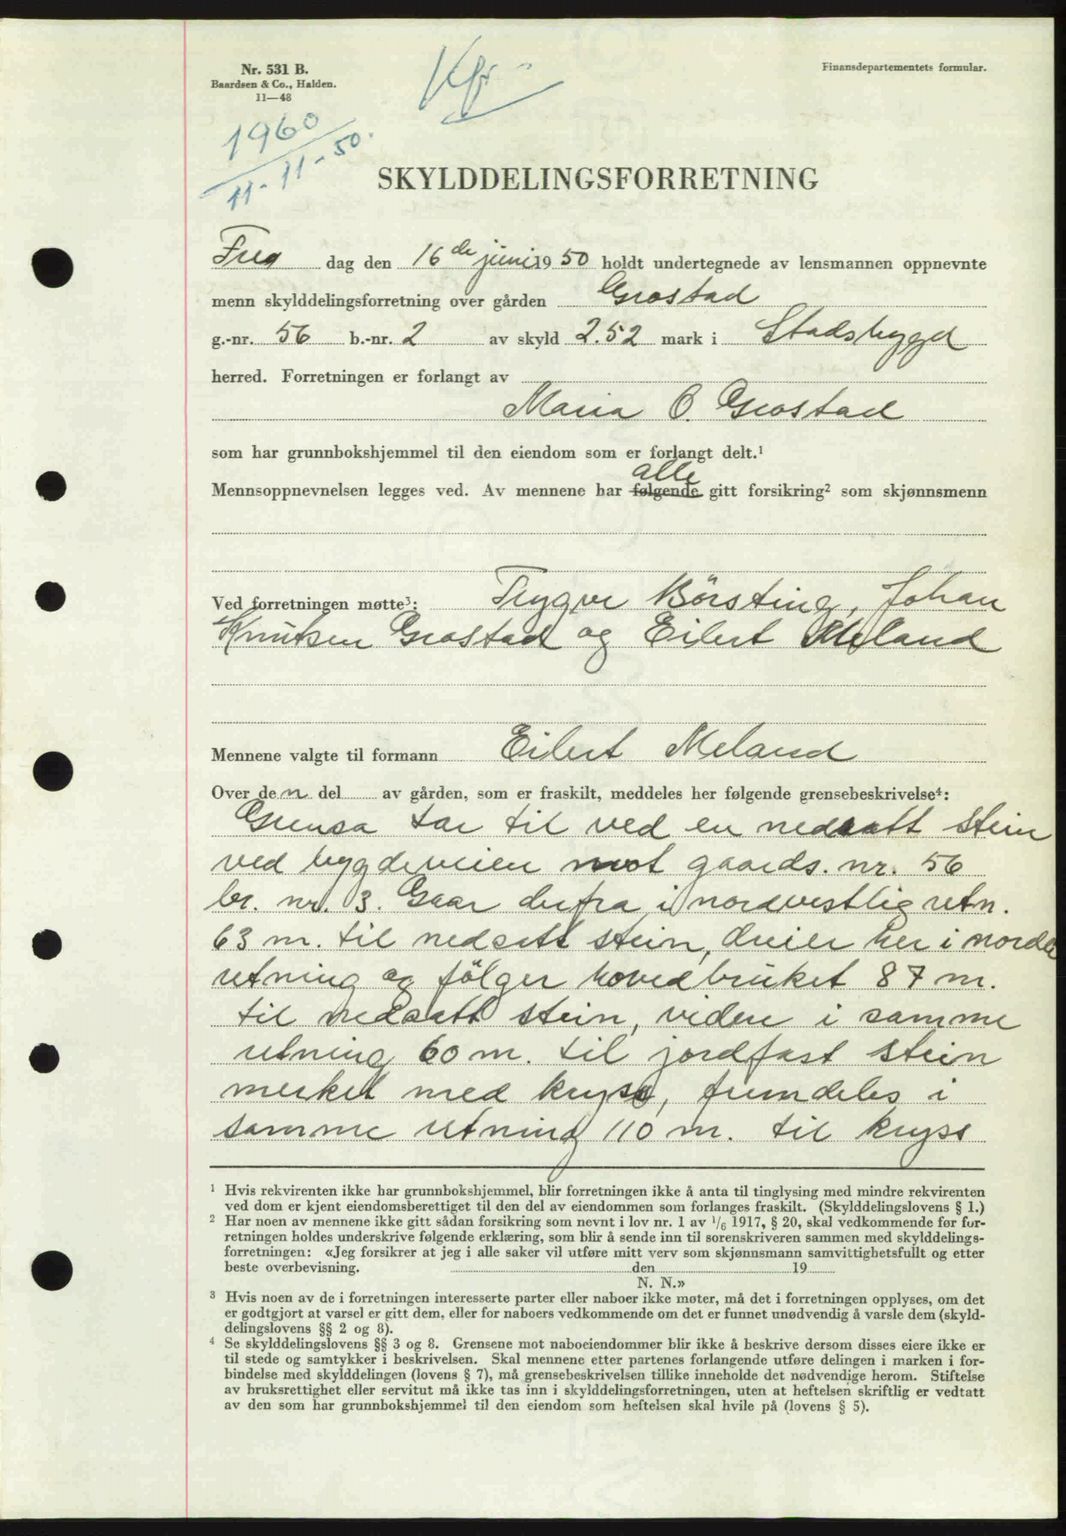 Nr. 531 B.
Baardsen & Co., Halden.
11—48
Finansdepartementets formular.
Kfr
1960
11-11-50.
SKYLDDELINGSFORRETNING
Fre dag den 16de juni 1950 holdt undertegnede av lensmannen oppnevnte
menn skylddelingsforretning over gården Grøstad
g.-nr. 56 b.-nr. 2 av skyld 2.52 mark i Stadsbygd
herred. Forretningen er forlangt av
Maria O. Grøstad
som har grunnbokshjemmel til den eiendom som er forlangt delt.¹
alle
Mennsoppnevnelsen legges ved. Av mennene har følgende gitt forsikring² som skjønnsmenn
Ved forretningen møtte³: Trygve Börsting, Johan
Knutsen Grøstad og Eilert Meland
Mennene valgte til formann Eilert Meland
Over den del av gården, som er fraskilt, meddeles her følgende grensebeskrivelse⁴:
Grensa tar til ved en nedsatt stein
ved bygdeveien mot gaards. nr. 56
br. nr. 3. Gaar derfra i nordvestlig retn.
63 m. til nedsatt stein, dreier her i nordlig
retning og fölger hovedbruket 87 m.
til nedsatt stein, videre i samme
retning 60 m. til jordfast stein
merket med kryss, fremdeles i
samme retning 110 m. til kryss
¹ Hvis rekvirenten ikke har grunnbokshjemmel, blir forretningen ikke å anta til tinglysing med mindre rekvirenten
ved dom er kjent eiendomsberettiget til den del av eiendommen som forlanges fraskilt. (Skylddelingslovens § 1.)
² Har noen av mennene ikke gitt sådan forsikring som nevnt i lov nr. 1 av 1/6 1917, § 20, skal vedkommende før for-
retningen holdes underskrive følgende erklæring, som blir å sende inn til sorenskriveren sammen med skylddelings-
forretningen: «Jeg forsikrer at jeg i alle saker vil utføre mitt verv som skjønnsmann samvittighetsfullt og etter
beste overbevisning. den 19
N. N.»
³ Hvis noen av de i forretningen interesserte parter eller naboer ikke møter, må det i forretningen opplyses, om det
er godtgjort at varsel er gitt dem, eller for naboers vedkommende om det er funnet unødvendig å varsle dem (skyld-
delingslovens §§ 2 og 8).
⁴ Se skylddelingslovens §§ 3 og 8. Grensene mot naboeiendommer blir ikke å beskrive dersom disses eiere ikke er
til stede og samtykker i beskrivelsen. Skal mennene etter partenes forlangende utføre delingen i marken i for-
bindelse med skylddelingen (lovens § 7), må grensebeskrivelsen tillike inneholde det nødvendige herom. Stiftelse
av bruksrettighet eller servitut må ikke tas inn i skylddelingsforretningen, uten at heftelsen skriftlig er vedtatt
av den som har grunnbokshjemmel til den eiendom som heftelsen skal hvile på (lovens § 5).